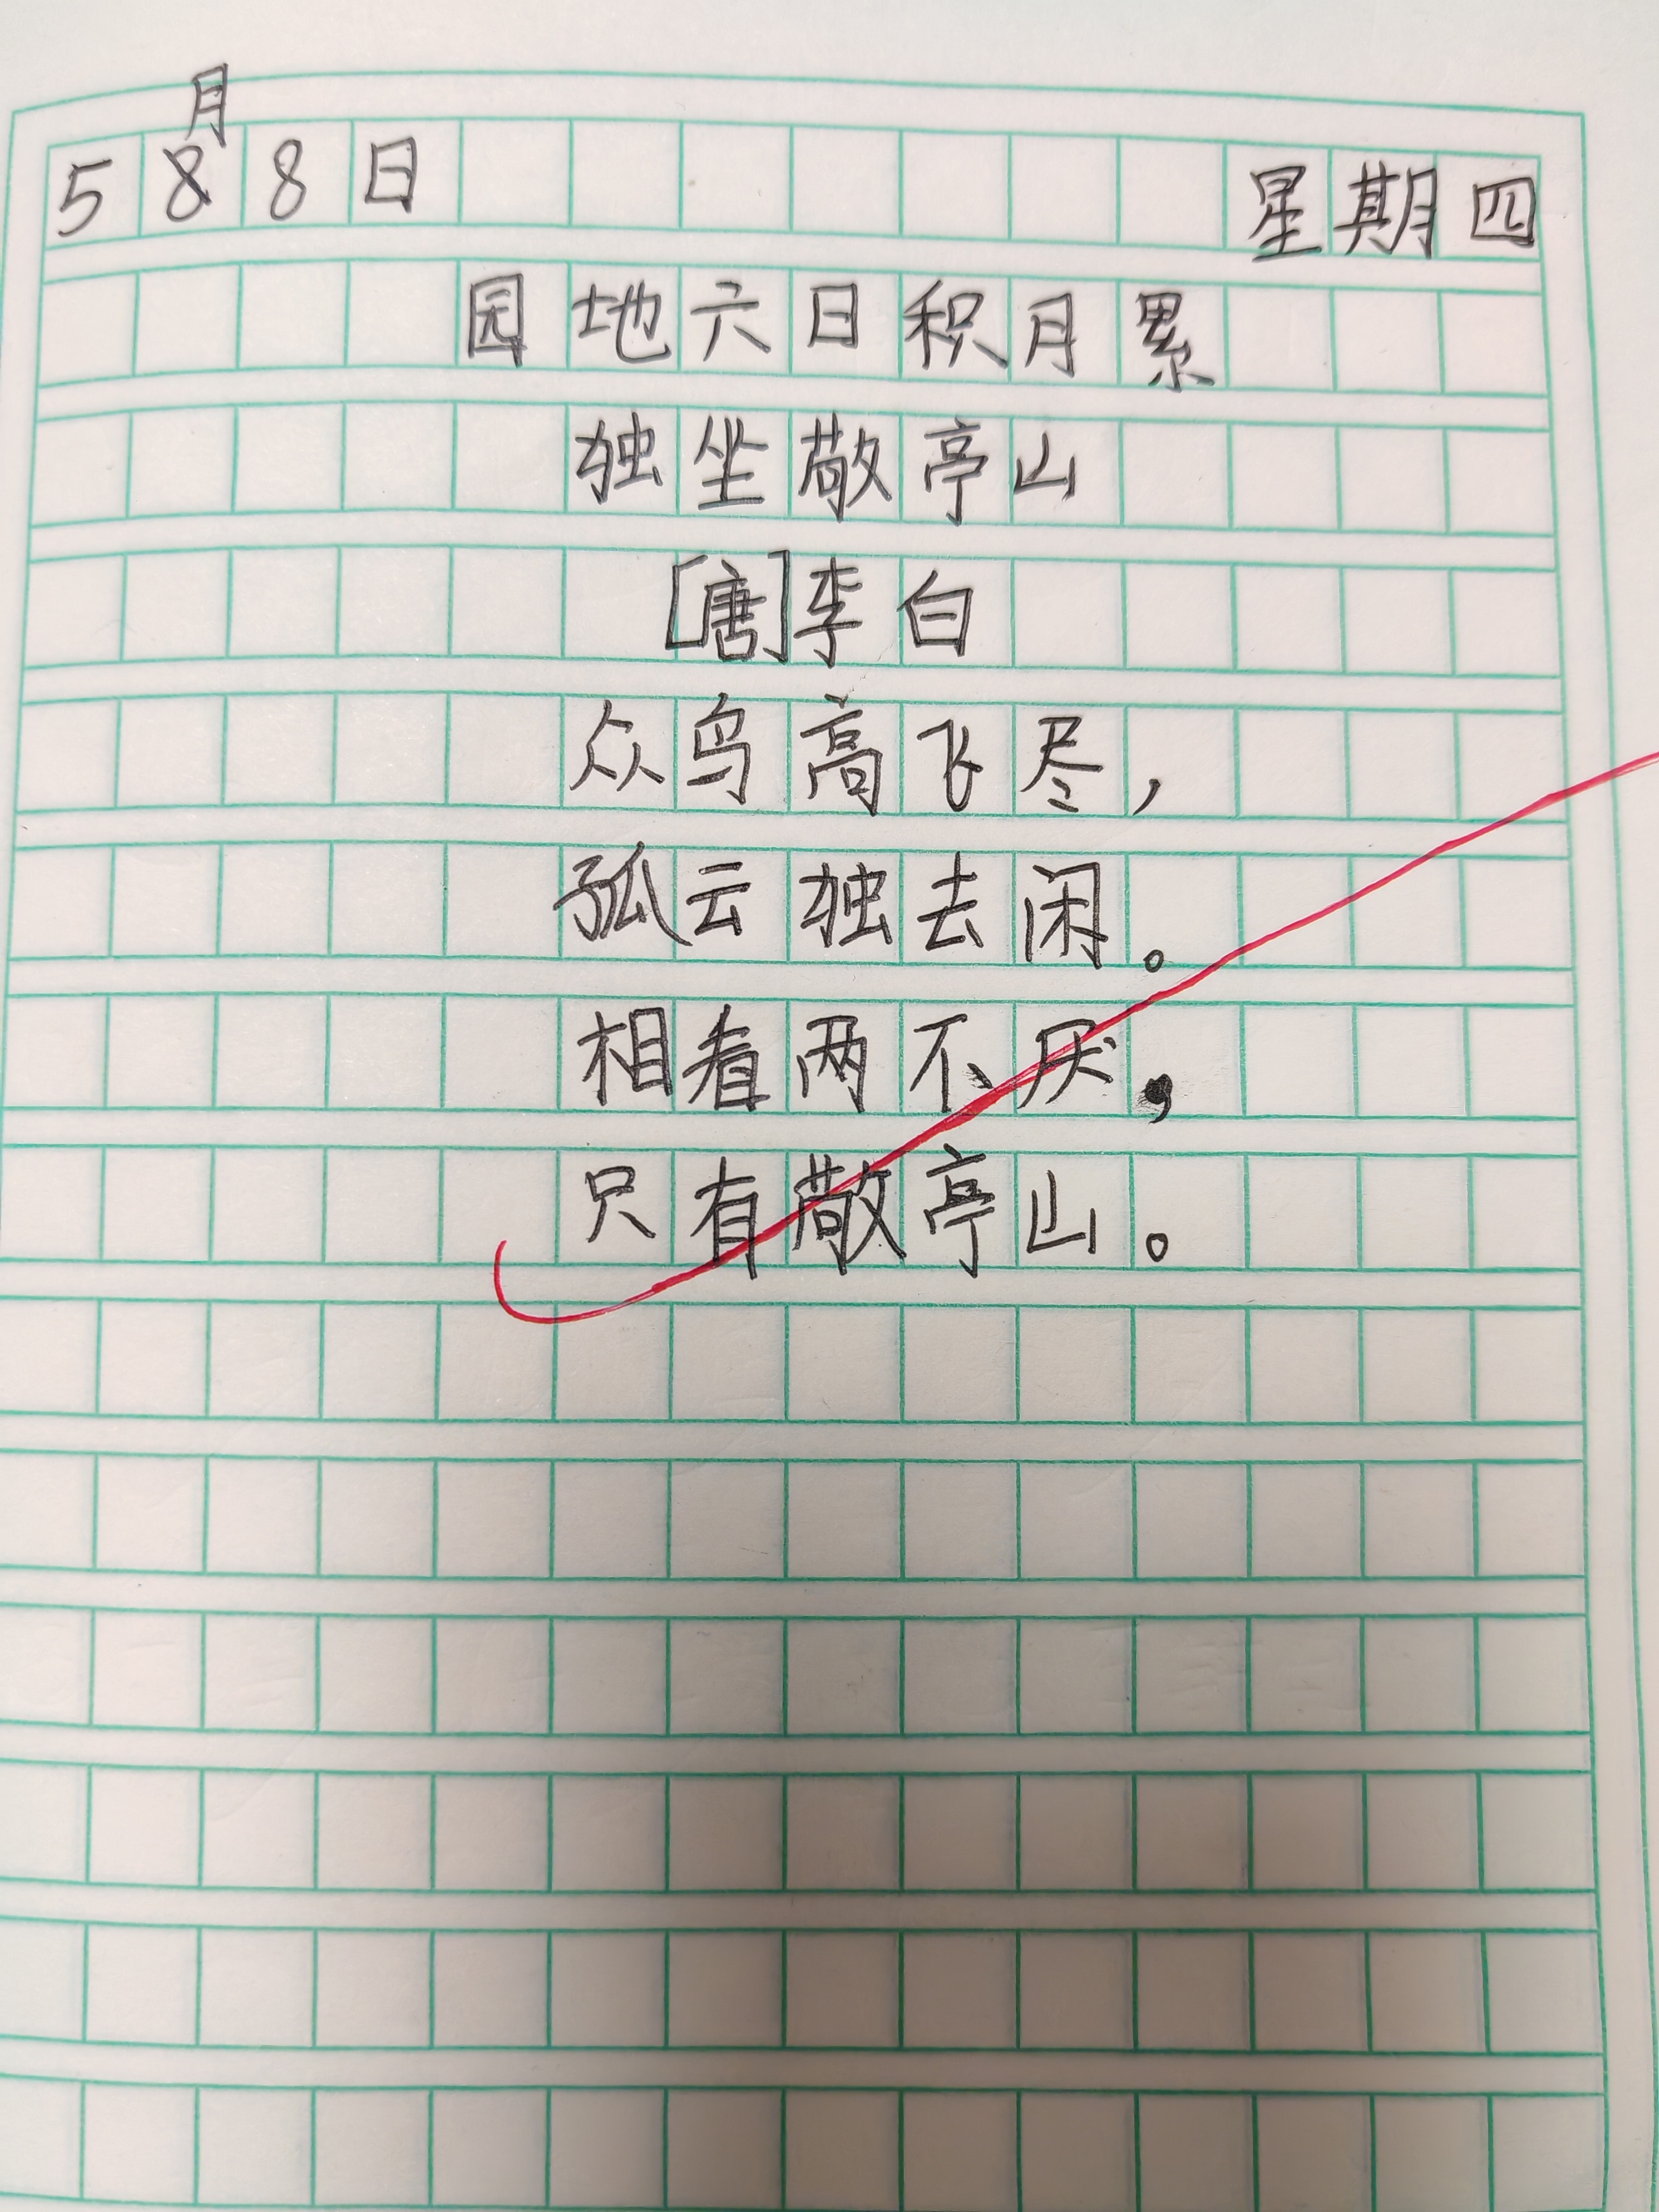 5月8日 星期四
园地六日积月累
独坐敬亭山
[唐]李白
众鸟高飞尽，
孤云独去闲。
相看两不厌，
只有敬亭山。